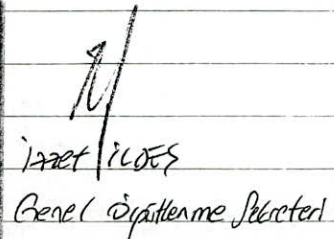 İzzet İLDEŞ
Genel Örgütlenme Sekreteri